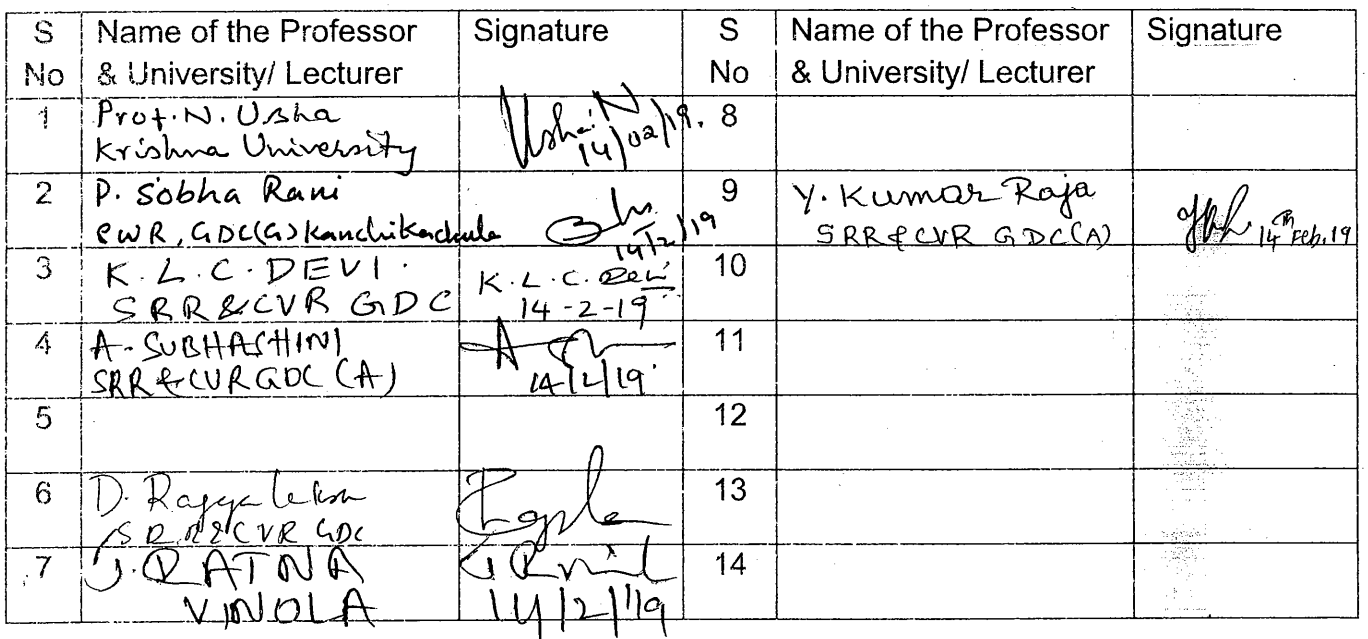 S No
Name of the Professor & University/ Lecturer
Signature
S No
Name of the Professor & University/ Lecturer
Signature
1
Prof. N. Usha
Krishna University
Usha.N
14/02/19.
8
2
P. Sobha Rani
PWR, GDC(G) Kanchikacherla
14/2/19
9
Y. Kumar Raja
SRR & CVR GDC(A)
14th Feb, 19
3
K. L. C. DEVI.
SRR & CVR GDC
K. L. C. Devi
14-2-19
10
4
A. SUBHASHINI
SRR & CVR GDC (A)
14/2/19
11
5
12
6
D.
SRR & CVR GDC
13
7
RATNA
VINOLA
14/2/19
14